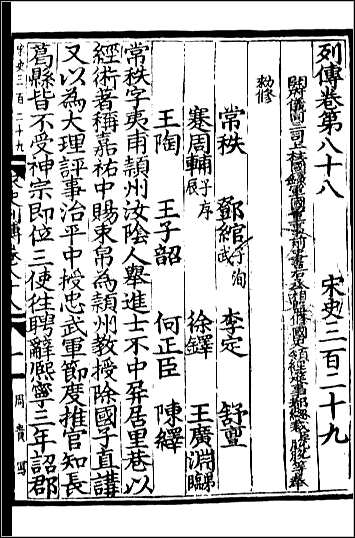 列傳卷第八十八 宋史三百二十九
開府儀同三司上柱國錄軍國重事前中書右丞相監修國史領經筵事都總裁臣脫脫等奉
勑修
常秩 鄧綰子洵武 李定 舒亶
蹇周輔子序辰 徐鐸 王廣淵弟臨
王陶 王子韶 何正臣 陳繹
常秩字夷甫潁州汝陰人舉進士不中屏居里巷以
經術著稱嘉祐中賜束帛為潁州教授除國子直講
又以為大理評事治平中授忠武軍節度推官知長
葛縣皆不受神宗即位三使往聘辭熙寧三年詔郡
宋史三百二十九 列傳卷八十八 一